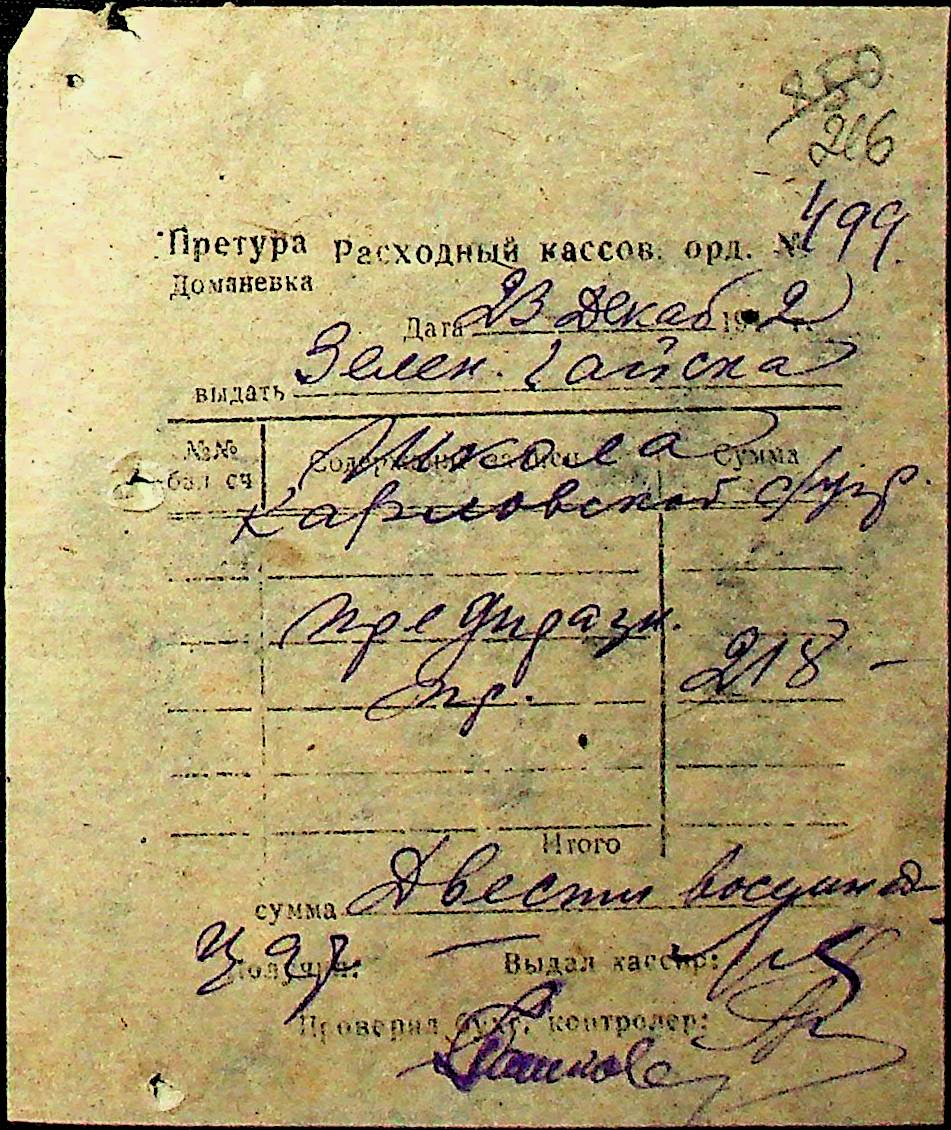 850
216
Претура Расходный кассов. орд. № 499
Доманевка
Дата 23 Декаб 1942 г.
выдать Зелен. Гайска
Школа
№№ бал сч Содержание записи Сумма
Карловской
предпразн.
пр. 218 —
Итого
сумма Двести восумнад
Получил: Выдал кассир:
Проверил бухг. контролер: